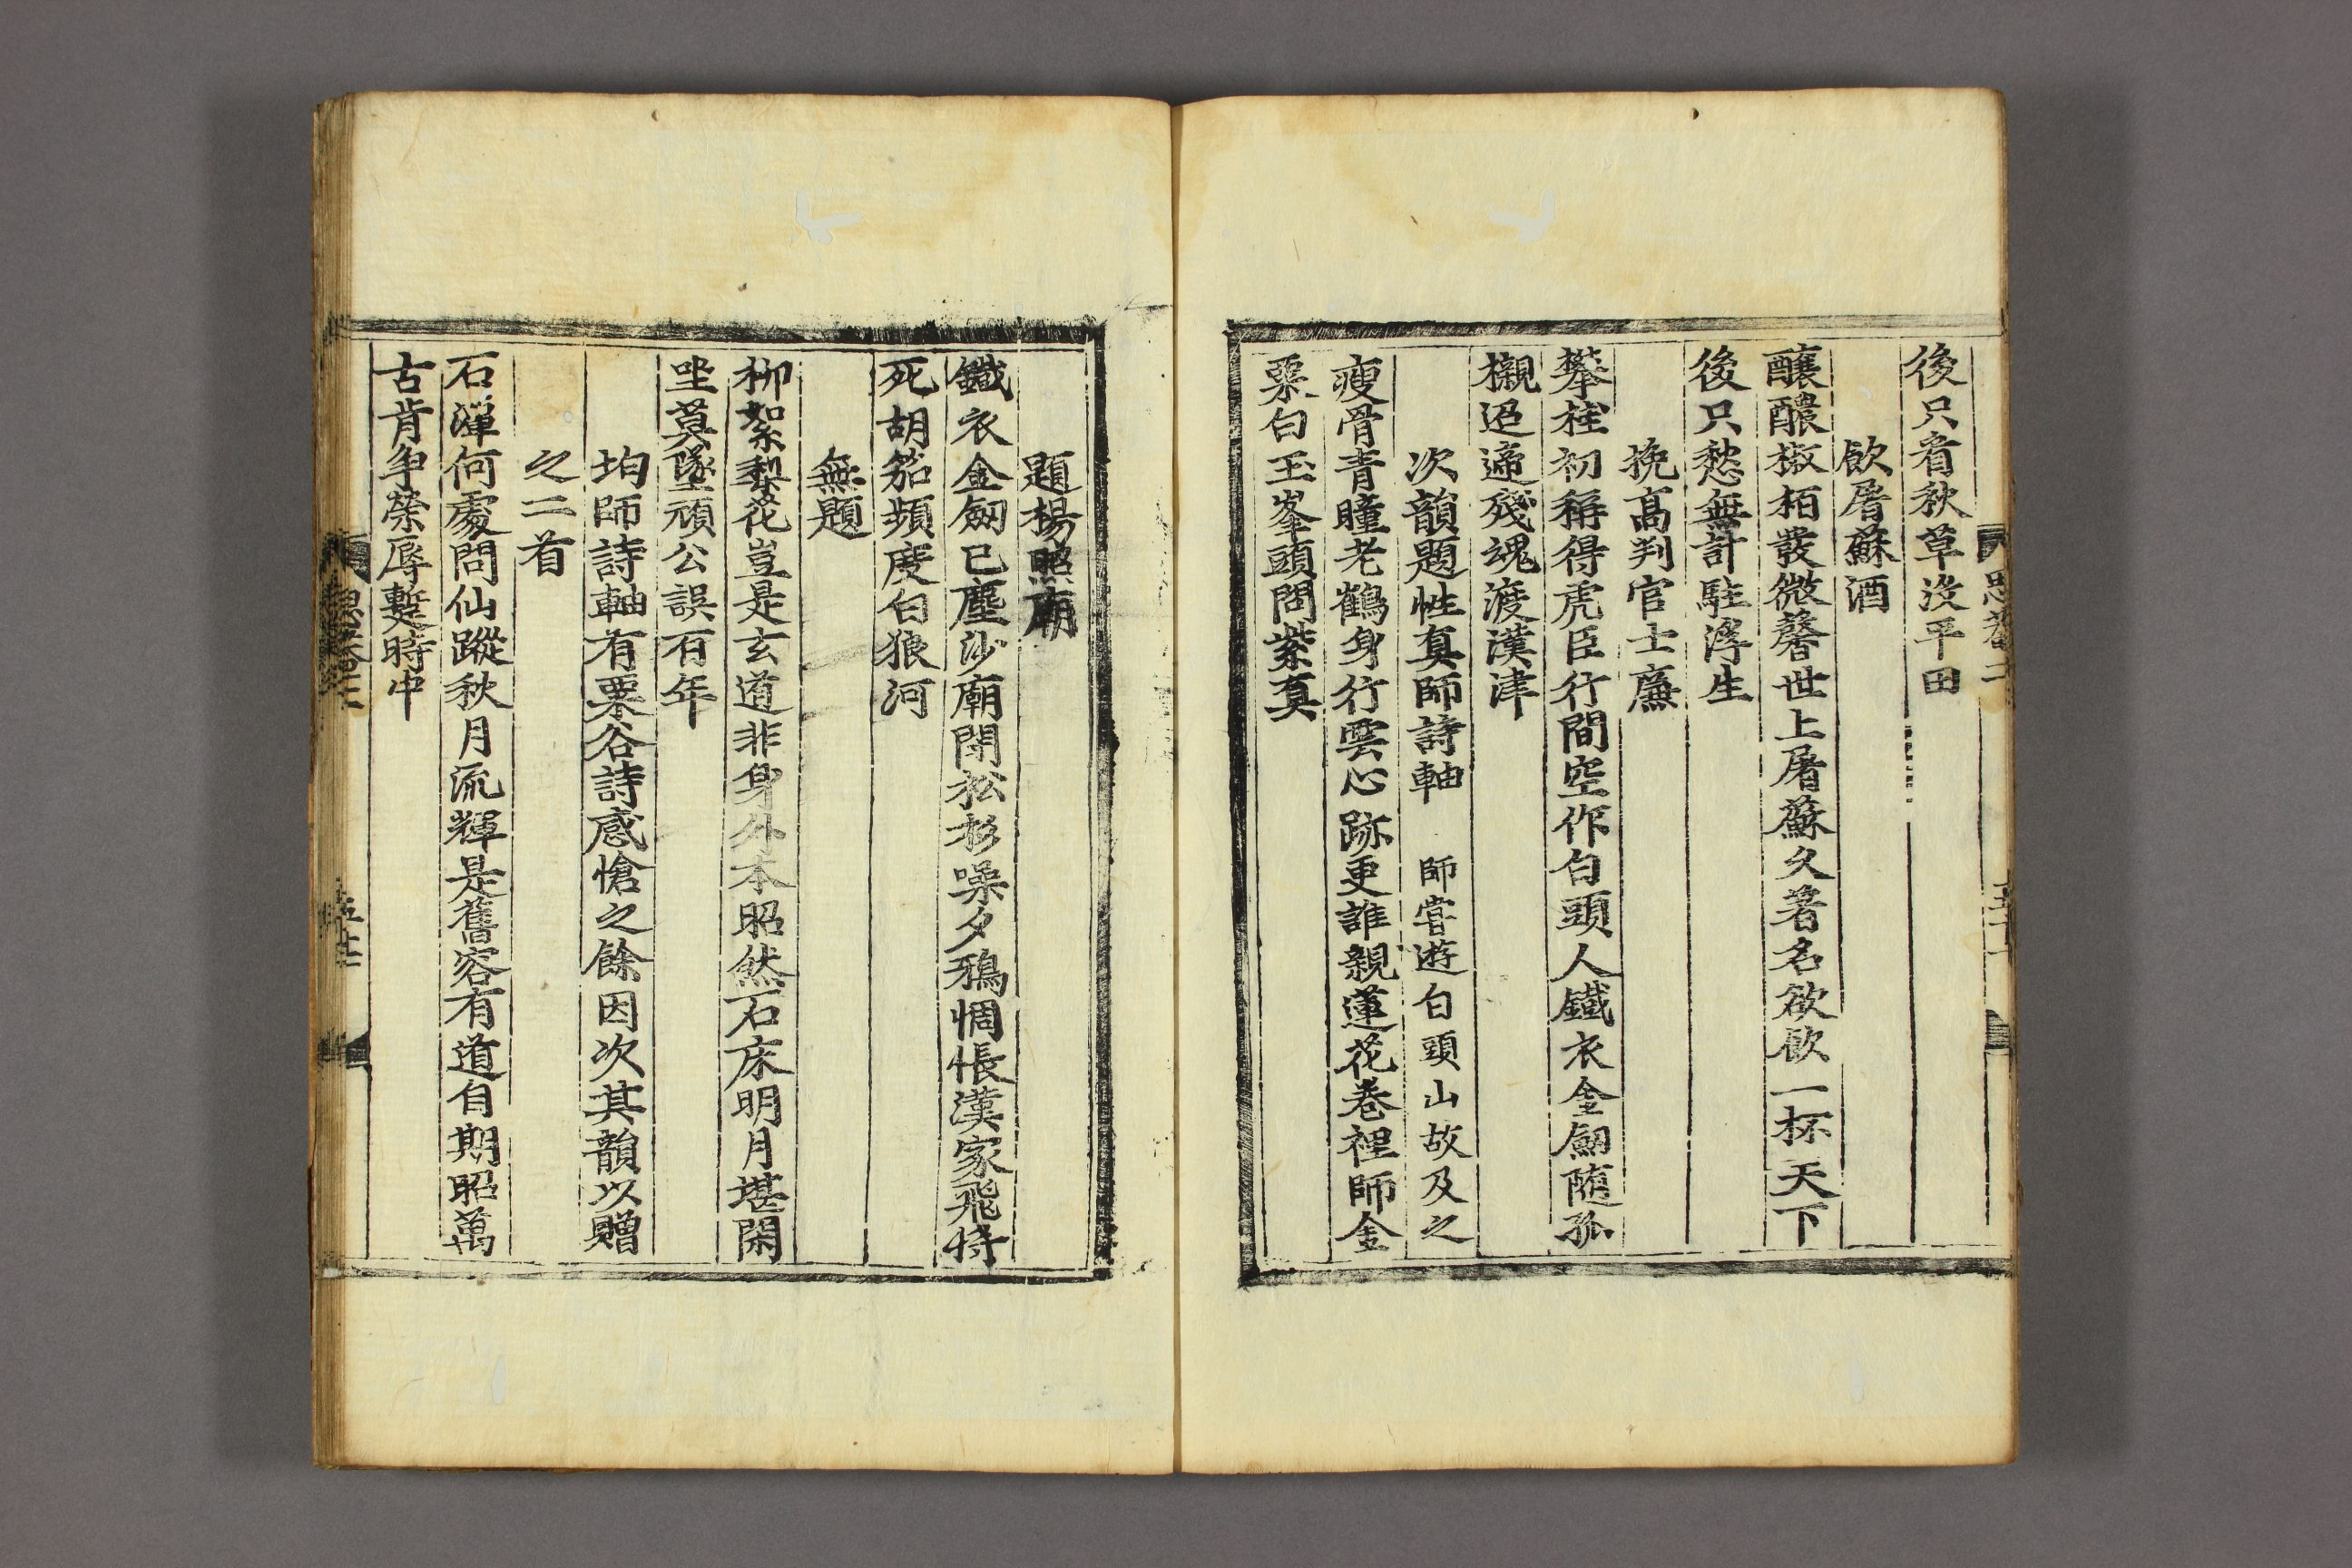 後只看秋草沒平田
飮屠蘇酒
釀醲椒栢發微馨世上屠蘇久著名欲飮一杯天下
後只愁無計駐浮生
挽高判官士廉
攀桂初稱得虎臣行間空作白頭人鐵衣金劒随孤
櫬迢遆殘魂渡漢津
次韻題性真師詩軸 師嘗遊白頭山故及之
瘦骨青瞳老鶴身行雲心跡更誰親蓮花卷裡師金
粟白玉峯頭問紫真
題楊照廟
鐵衣金劒已塵沙廟閉松杉噪夕鴉惆悵漢家飛將
死胡笳頻度白狼河
無題
柳絮梨花豈是玄道非身外本昭然石床明月堪閑
坐莫墜頑公誤百年
均師詩軸有栗谷詩感愴之餘因次其韻以贈
之二首
石潭何處問仙蹤秋月流輝是舊容有道自期昭萬
古肯争榮辱蹔時中